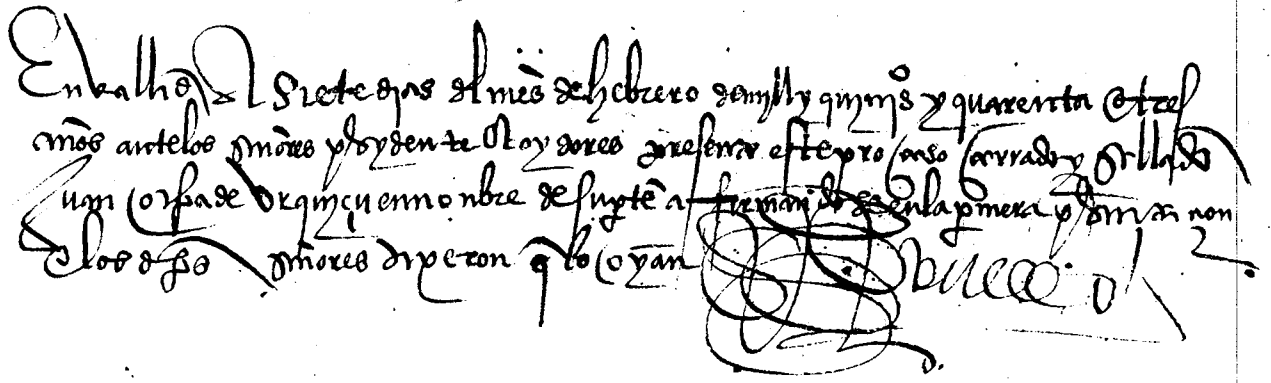 En vallid a siete dias del mes de hebrero de mill y quinjs y quarenta e tres
años ante los señores presydente e oydores presento este proçeso çerrado y sellado
Juan de urquiçu en nonbre de su parte afirmandose en la primera presentaçion
e los dhos señores dixeron q lo oyan